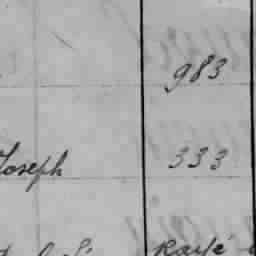 983
Joseph 333
Rayé